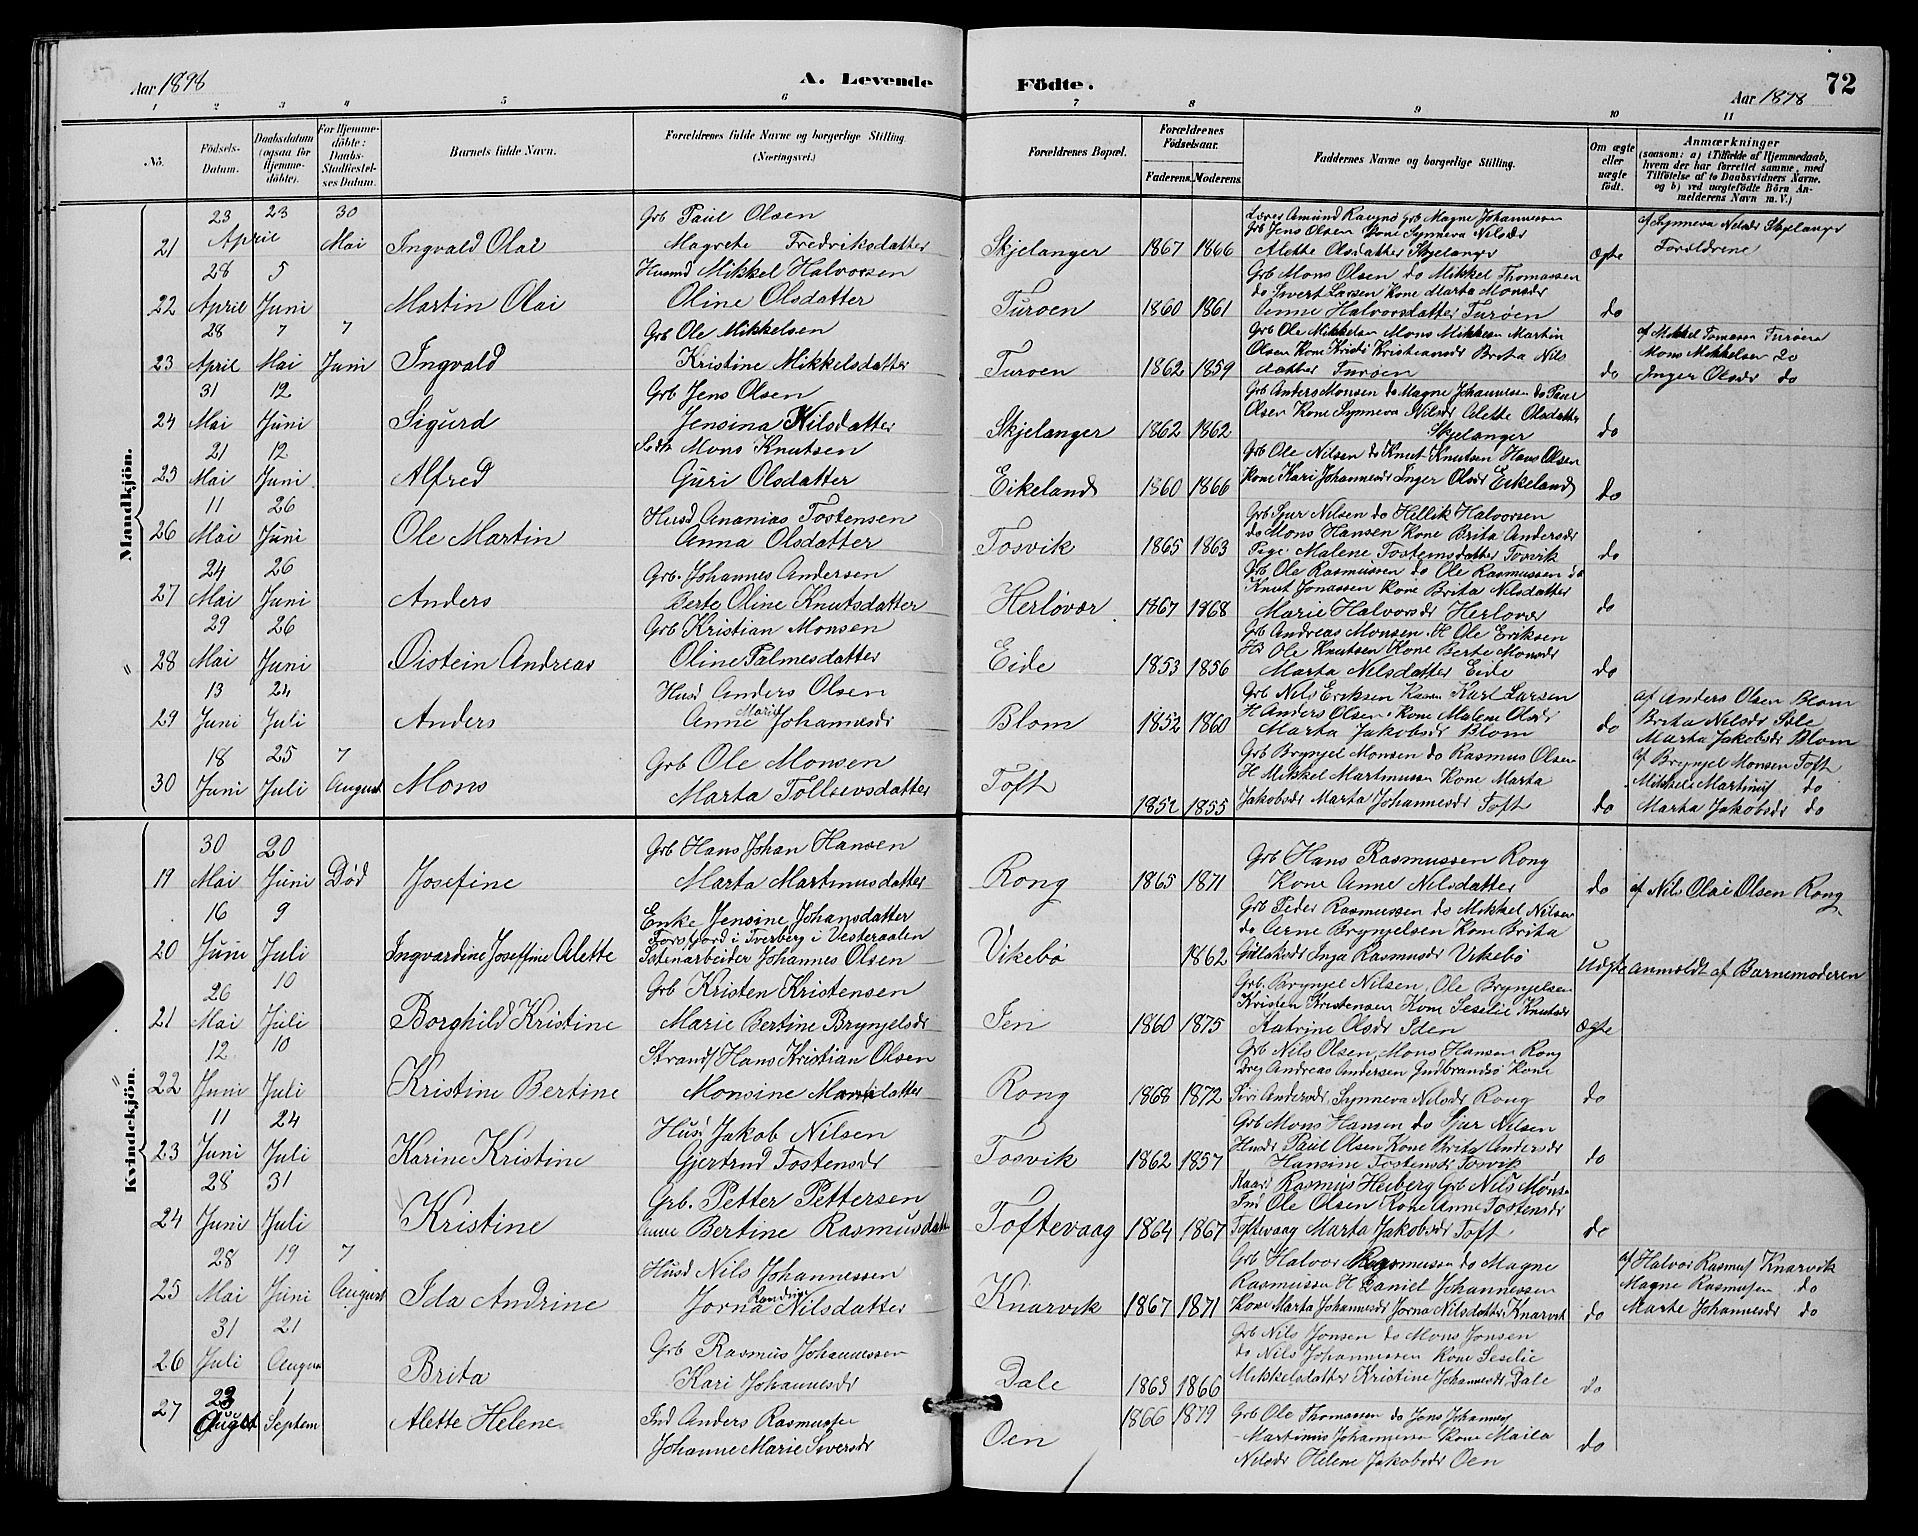 Aar 1898 A. Levende Födte. Aar 1898 72
1 2 3 4 5 6 7 8 9 10 11
No.
Födsels-Datum.
Daabsdatum (ogsaa for Hjemmedöbte).
For Hjemmedöbte: Daabs-Stadfæstelses Datum.
Barnets fulde Navn.
Forældrenes fulde Navne og borgerlige Stilling (Næringsvei.)
Forældrenes Bopæl.
Forældrenes Födselsaar.
Faderens. Moderens.
Faddernes Navne og borgerlige Stilling.
Om ægte eller uægte födt.
Anmærkninger
(saasom: a) i Tilfælde af Hjemmedaab,
hvem der har forrettet samme, med
Tilföielse af to Daabsvidners Navne.
og b) ved uægtefödte Börn An-
melderens Navn m. V.)
Mandkjön.
21 23 April 23 30 Mai Ingvald Olai
Grb Paul Olsen
Magrete Fredriksdatter
Skjelanger 1867 1866
Lærer Amund Grb Magne Johannessen
Grb Jens Olsen Kone Synneva Nilsdr
Alette Olsdatter Skjelanger
ægte
af Synneva Nilsdr Skjelanger
Forældrene
22 28 April 5 Juni Martin Olai
Husmd Mikkel Halvorsen
Oline Olsdatter
Turoen 1860 1861
Grb Mons Olsen do Mikkel Thomassen
do Sivert Larsen Kone Marta Monsdr
Anne Halvorsdatter Turøen
do
23 28 April 7 Mai 7 Juni Ingvald
Grb Ole Mikkelsen
Kristine Mikkelsdatter
Turoen 1862 1859
Grb Ole Mikkelsen Mons Mikkelsen Martin
Olsen Kone Kristi Kristiansdr Brita Nils
datter Turøen
do
af Mikkel Tomassen Turøen
Mons Mikkelsen do
Inger Olsdr do
24 31 Mai 12 Juni Sigurd
Grb Jens Olsen
Jensina Nilsdatter
Skjelanger 1862 1862
Grb Anders Monsen do Magne Johannesen do Paul
Olsen Kone Synneva Nilsdr Alette Olsdatter
Skjelanger
do
25 21 Mai 12 Juni Alfred
Mons Knutsen
Guri Olsdatter
Eikeland 1860 1866
Grb Ole Nilsen do Knut Knutsen Hans Olsen
Kone Kari Johannesdr Inger Olsdr Eikeland
do
26 11 Mai 26 Juni Ole Martin
Husd Ananias Tostensen
Anna Olsdatter
Tosvik 1865 1863
Grb Sjur Nilsen do Hellik Halvorsen
do Mons Hansen Kone Brita Andersdr
Pige Malene Tostensdatter Tosvik
do
27 24 Mai 26 Juni Anders
Grb. Johannes Andersen
Berte Oline Knutsdatter
Herløvær 1867 1868
Grb Ole Rasmussen do Ole Rasmussen do
Knut Jonassen Kone Brita Nilsdatter
Marie Halvorsdr Herlovær
do
28 29 Mai 26 Juni Øistein Andreas
Grb Kristian Monsen
Oline Palmesdatter
Eide 1853 1856
Grb Andreas Monsen H Ole Eriksen
Hs Ole Knutsen Kone Berte Monsdr
Marta Nilsdatter Eide
do
29 13 Juni 24 Juli Anders
Husd Anders Olsen
Anne Marie Johannesdr
Blom 1852 1860
Grb Nils Eriksen Karl Larsen
H Anders Olsen Kone Malene Olsdr
Marta Jakobsdr Blom
do
af Anders Olsen Blom
Brita Nilsdr
Marta Jakobsdr Blom
30 18 Juni 25 Juli 7 August Mons
Grb Ole Monsen
Marta Tollsevsdatter
Toft 1852 1855
Grb Brynjel Monsen do Rasmus Olsen
H Mikkel Martinussen Kone Marta
Jakobsdr Marta Johannesdr Toft
do
af Brynjel Monsen Toft
Mikkel Martinus do
Marta Jakobsdr do
Kvindekjön.
19 30 Mai 20 Juni Død Josefine
Grb Hans Johan Hansen
Marta Martinusdatter
Rong 1865 1871
Grb Hans Rasmussen Rong
Kone Anne Nilsdatter
do
af Nils Olai Olsen Rong
20 16 Juni 9 Juli Ingvardine Joseffine Alette
Enke Jensine Johansdatter
Forsgord i Tverberg i Vesteraalen
Stenarbeider Johannes Olsen
Vikebø 1862
Grb Peder Rasmussen do Mikkel Nilsen
do Arne Brynjelsen Kone Brita
Gullaksdr Inga Rasmusdr Vikebø
Uægte
anmeldt af Barnemoderen
21 26 Mai 10 Juli Borghild Kristine
Grb Kristen Kristensen
Marie Bertine Brynjelsdr
Ien 1860 1875
Grb. Brynjel Nilsen, Ole Brynjelsen
Kristen Kristensen Kone Seselie Knutsdr
Katrine Olsdr Iden
ægte
22 12 Juni 10 Juli Kristine Bertine
Strands Hans Kristian Olsen
Monsine Monsdatter
Rong 1868 1872
Grb Nils Olsen, Mons Hansen Rong
Dreg Andreas Andersen Gudbrandsø Kone
Siri Andersdr, Synneva Nilsdr Rong
do
23 11 Juni 24 Juli Karine Kristine
Husd Jakob Nilsen
Gjertrud Tostensdr
Tosvik 1862 1857
Grb Mons Hansen do Sjur Nilsen
Husdr Paul Olsen Kone Brita Andersdr
Hansine Tostensdr Tosvik
do
24 28 Juni 31 Juli Kristine
Grb. Petter Pettersen
Bertine Rasmusdatter
Toftevaag 1864 1867
Rasmus Heiberg Grb Nils Monsen
Ind Ole Olsen Kone Anne Tostensdr
Toftevaag Marta Jakobsdr Toft
do
25 28 Mai 19 Juni 7 August Ida Andrine
Husd Nils Johannessen
Jorna Nilsdatter
Knarvik 1867 1871
Grb Halvor Rasmussen do Magne
Rasmussen H Daniel Johannessen
Kone Marta Johannesdr Jorna Nilsdatter Knarvik
do
af Halvor Rasmus Knarvik
Magne Rasmussen do
Marte Johannesdr do
26 31 Juli 21 August Brita
Grb Rasmus Johannessen
Kari Johannesdr
Dale 1863 1866
Grb Nils Jonsen do Mons Jonsen
do Nils Johannessen Kone Seselie
Mikkelsdatter Kristine Johannesdr Dale
do
27 23 August 1 Septem Alette Helene
Ind Anders Rasmussen
Johanne Marie Siversdr
Oen 1866 1879
Grb Ole Thomassen do Jens Johannes
Martinus Johannessen Kone Maila
Nilsdr Helene Jakobsdr Oen
do